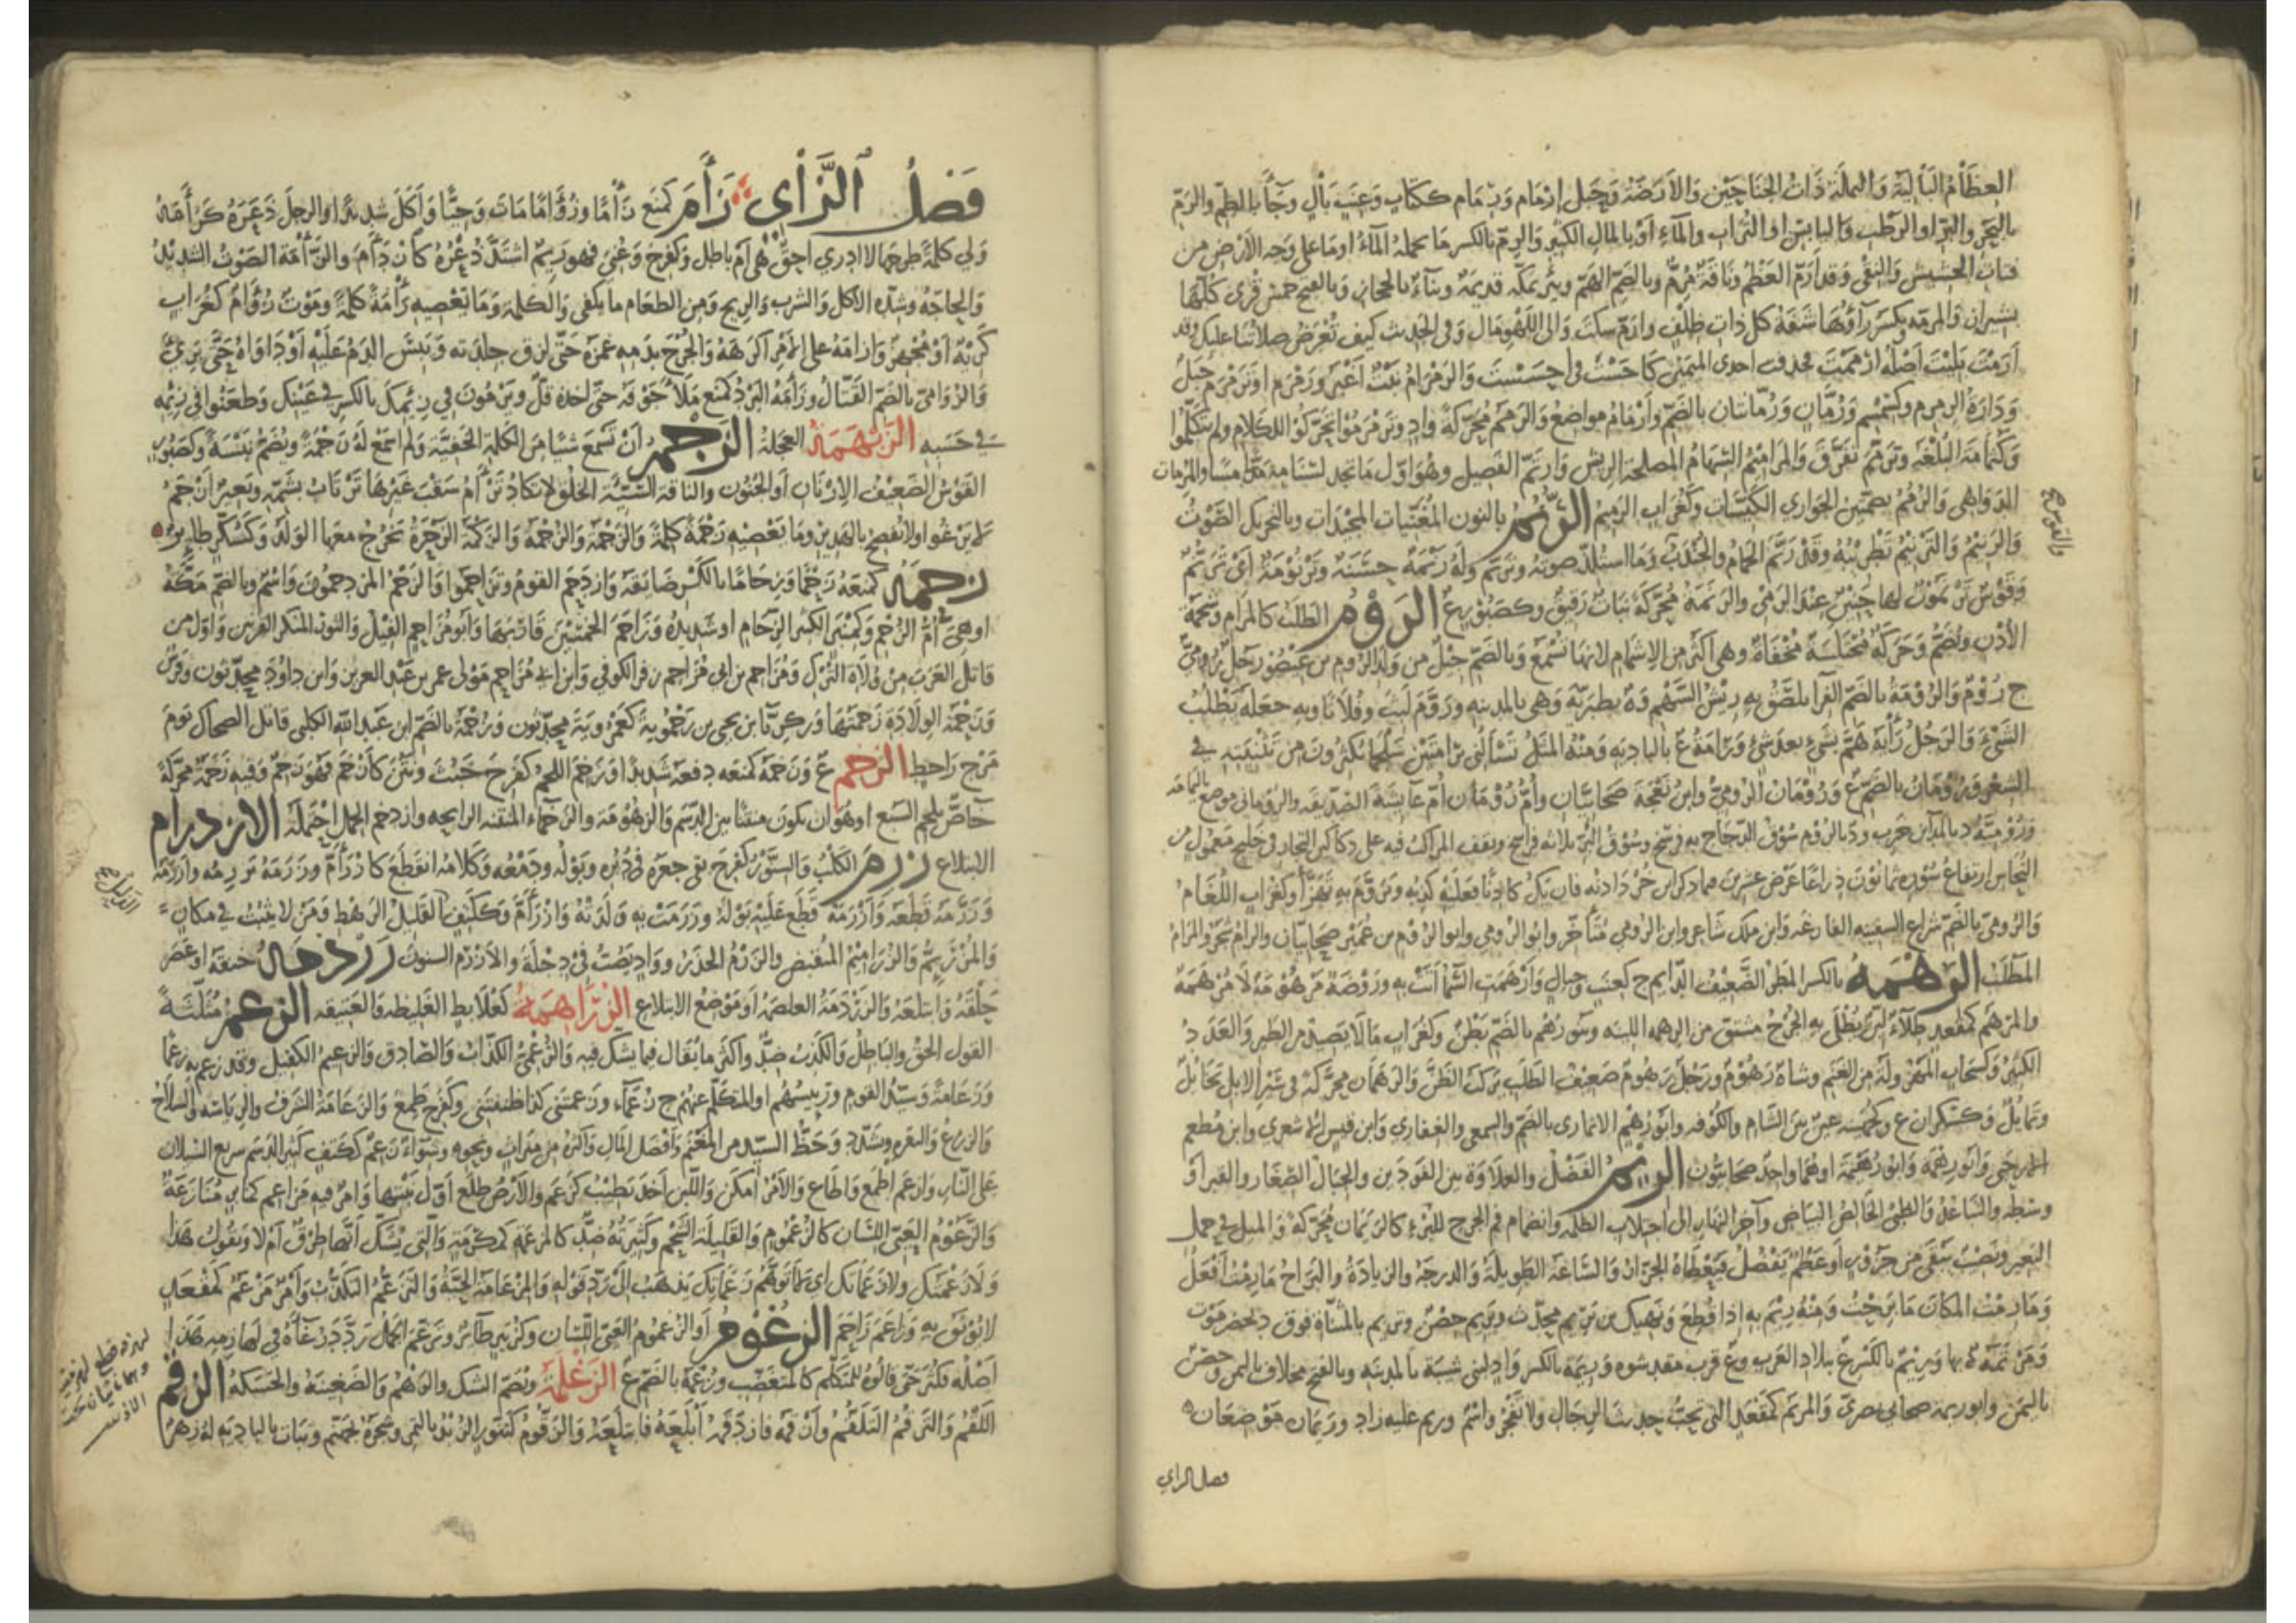 العظام البالية والنملة ذات الجناحين والارضة وحبل ارمام ورمام ككتاب وعنب بال وجآ بالطم والرم
بالبحر والبر او الرطب واليابس او التراب والمآء او بالمال الكثير والرم بالكسر ما يحمله المآء او ما على وجه الارض من
فتات الحشيش والنقى وقد ارم العظم وناقة مرم وبالضم الهم وبئر بمكة قديمة وبنآء بالحجاز وبالفتح خمس قرى كلها
بشيراز والمرمة بكسر رآؤها شفة كل ذات ظلف وارم سكت والى اللهو مال وفي الحديث كيف تعرض صلاتنا عليك وقد
ارمت بليت اصله ارممت فحذفت احدى الميمين كاحست في احسست والرمرام نبت اغبر ورمرم او يرمرم جبل
ودارة الرمرم كسمسم ورمان ورمانتان بالضم وارمام مواضع والرمم محركة واد وترمرموا تحركوا للكلام ولم يتكلموا
وكثمامة البلغة وترمم تفرق والمراميم السهام المصلحة الريش وارتم الفصيل وهو اول ما تجد لسنامه مسا والمرمات
الدواهى والرمم بضمتين الجوارى الكيسات وكغراب الرميم الرنم بالنون المغنيات المجيدات وبالتحريك الصوت
والرنيم والترنيم تطريبه وقد رنم الحمام والجندب وما استلذ صوته وترنم وله رنمة حسنة وترنومة اى ترنم
وقوس ترنموت لها حنين عند الرمى والرنمة محركة نبات دقيق وكصبور ع الروم الطلب كالمرام وشحمة
الاذن وتضم وحركة مختلسة مخفاة وهى اكثر من الاشمام لانها تسمع وبالضم جيل من ولد الروم بن عيصو رجل رومى
ج روم والرومة بالضم الغرا يلصق به ريش السهم وة بطبرية وهى بالمدينة وروم لبث وفلانا وبه جعله يطلب
الشىء والرجل رأيه هم بشىء بعد شىء ورامة ع بالبادية ومنه المثل تسألنى برامتين سلجما يكثرون من تثنيته في
الشعر ورومان بالضم ع ورومان الرومى وابن نعجة صحابيان وام رومان ام عائشة الصديقة والرومانى موضع باليمامة
ورومية د بالمدائن خرب ود بالروم سوق الدجاج به فرسخ وسوق البر ثلاثة فراسخ وتقف المراكب فيه على دكاكين التجار في خليج معمول من
النحاس ارتفاع سوره ثمانون ذراعا عرض عشرين فيما ذكر ابن خرداذبه فان يك كاذبا فعليه كذبه وتروم به تهزأ وكغراب اللغام
والرومى بالضم شراع السفينة الفارغة وابن ملك شاعر وابن الرومى متأخر وابو الرومى وابو الروم بن عمير صحابيان والرام شجر والمرام
المطلب الرهمة بالكسر المطر الضعيف الدائم ج كعنب وجبال وارهمت السمآ اتت به وروضة مرهومة لا مرهمة
والمرهم كمقعد طلآء لين يطلى به الجرح مشتق من الرهمة للينه وبنو رهم بالضم بطن وكغراب ما لا يصيد من الطير والعدد
الكثير وكسحاب المهزولة من الغنم وشاة رهوم ورجل رهوم ضعيف الطلب يركب الظن والرهمان محركة في سير الابل تحامل
وتمايل وكسكران ع وكجهينة عين بين الشام والكوفة وابو رهم الانمارى بالضم والسمعى والغفارى وابن قيس الاشعرى وابن مطعم
الارحبى وابو رهمة وابو رهيمة او هما واحد صحابيون الريم الفضل والعلاوة بين الفودين والجبال الصغار والقبر او
وسطه والتباعد والظبى الخالص البياض وآخر النهار الى اختلاط الظلمة وانضمام فم الجرح للبرء كالريمان محركة والميل في حمل
البعير ونصيب يبقى من جزور او عظم يفضل فيعطاه الجزار والساعة الطويلة والدرجة والزيادة والبراح ما رمت افعل
وما رمت المكان ما برحت ومنه وريم به اذا قطع ونهيك بن يريم محدث ويريم حصن وتريم بالمثناة فوق د بحضرموت
ومريمة ة بها وريم بالكسر ع ببلاد العرب وع قرب مقدشوه وريمة بالكسر واد لبنى شيبة بالمدينة وبالفتح مخلاف باليمن وحصن
باليمن وابو ريمة صحابى بصرى والمريم كمقعد التى تحب حديث الرجال ولا تفجر واسم وريم عليه زاد وريمان موضعان
والقوس صح
فصل الزاى
فصل الزاى زأم كمنع زأما وزؤاما مات وحيا واكل شديدا والرجل ذعره كزأمه
ولى كلمة طرحها لا ادرى احق هى ام باطل وكفرح وعنى فهو زئم اشتد ذعره كازدأم والزأمة الصوت الشديد
والحاجة وشدة الاكل والشرب والريح ومن الطعام ما يكفى والكلمة وما يعصيه زأمة كلمة وموت زؤام كغراب
كريه او مجهز وازأمه على الامر اكرهه والجرح بدمه غمزه حتى لزق جلدته ويبس الدم عليه او داواه حتى برئ
والزؤامى بالضم القتال وزأمه البرد كمنع ملأ جوفه حتى اخذه قل ويزهون في زئمك بالكسر في عينك وطعنوا في زئمه
في حسبه الزبهمة العجلة الزجم ان تسمع شيئا من الكلمة الخفية ولم اسمع له زجمة ويضم نبسة وكصبور
القوس الضعيف الارنان او الحنون والناقة السيئة الخلق لا تكاد ترأم سقب غيرها ترتاب بشمه وبعير ازجم
لا يرغو او لا يفصح بالهدير وما يعصيه زجمة كلمة والزجمة والزجمة والزكمة الزحرة تخرج معها الولد وكسكر طائر
زحمه كمنعه زحما وزحاما بالكسر ضايقه وازدحم القوم وتزاحموا والزحم المزدحمون واسم وبالضم مكة
او هى ام الزحم وكمنبر الكثير الزحام او شديده وزاحم الخمسين قاربها وابو مزاحم الفيل والثور المنكر القرنين واول من
قاتل العرب من ولاة الترك ومزاحم بن ابى مزاحم زفر الكوفى وابن ابى مزاحم مولى عمر بن عبد العزيز وابن داود محدثون وفرس
وزحمة الولادة زحمتها وزكريا بن يحيى بن زحمويه كعمرويه محدثون وزحمة بالضم ابن عبد الله الكلبى قاتل الضحاك يوم
مرج راهط الزخم ع وزخمه كمنعه دفعه شديدا وزخم اللحم كفرح خبث ونتن كازخم فهو زخم وفيه زخمة محركة
خاص بلحم السبع او هو ان يكون منتنا بين الدسم والزهومة والزخماء المنتنة الرائحة وازدخم الحمل احتمله الازدرام
الابتلاع زرم الكلب والسنور كفرح بقى جعره في دبره وبوله ودمعه وكلامه انقطع كازرأم وزرمه يزرمه وازرمه
وزرمه قطعه وازرمه قطع عليه بوله وزرمت به ولدته وازرأم وككتف القليل الرهط ومن لا يثبت في مكان
والمزرئم والزراميم المنقبض والزرم الحذر وواد يصب في دجلة والازرم السنور زردمه خنقه او عصر
حلقه وابتلعه والزردمة الغلصمة او موضع الابتلاع الزراهمة كعلابط الغليظة والعتيقة الزعم مثلثة
القول الحق والباطل والكذب ضد واكثر ما يقال فيما يشك فيه والزعمى الكذاب والصادق والزعيم الكفيل وقد زعم به زعما
وزعامة وسيد القوم ورئيسهم او المتكلم عنهم ج زعماء وزعمتنى كذا ظننتنى وكفرح طمع والزعامة الشرف والرياسة والسلاح
والدرع والبقرة ويشدد وحظ السيد من المغنم وافضل المال واكثره من ميراث ونحوه وشواء زعم ككتف كثير الدسم سريع السيلان
على النار وازعم اطمع واطاع والامر امكن واللبن اخذ يطيب كزعم والارض طلع اول نبتها وامر فيه مزاعم كمنابر منازعة
والزعوم العيى اللسان كالزعموم والقليلة الشحم وكثيرته ضد كالمزعمة كمكرمة والتى يشك ابها طرق ام لا وتقول هذا
ولا زعمتك ولا زعماتك اى لا اتوهم زعماتك تذهب الى رد قوله والمزعامة الحية والتزعم التكذب وامر مزعم كمقعد
لا يوثق به وزاعم زاحم الزغوم او الزغموم العيى اللسان وكزبير طائر وتزغم الجمل ردد رغاءه في لهازمه هذا
اصله فكثر حتى قالوه للمتكلم كالمتغضب وزغمة بالضم ع الزغلمة وبضم الشك والوهم والضغينة والحسكة الزقم
اللقم والتزقم التلقم وازقمه فازدقمه ابلعه فابتلعه والزقوم كتنور الزبد بالتمر وشجرة بجهنم ونبات بالبادية له زهر
الذليل صح